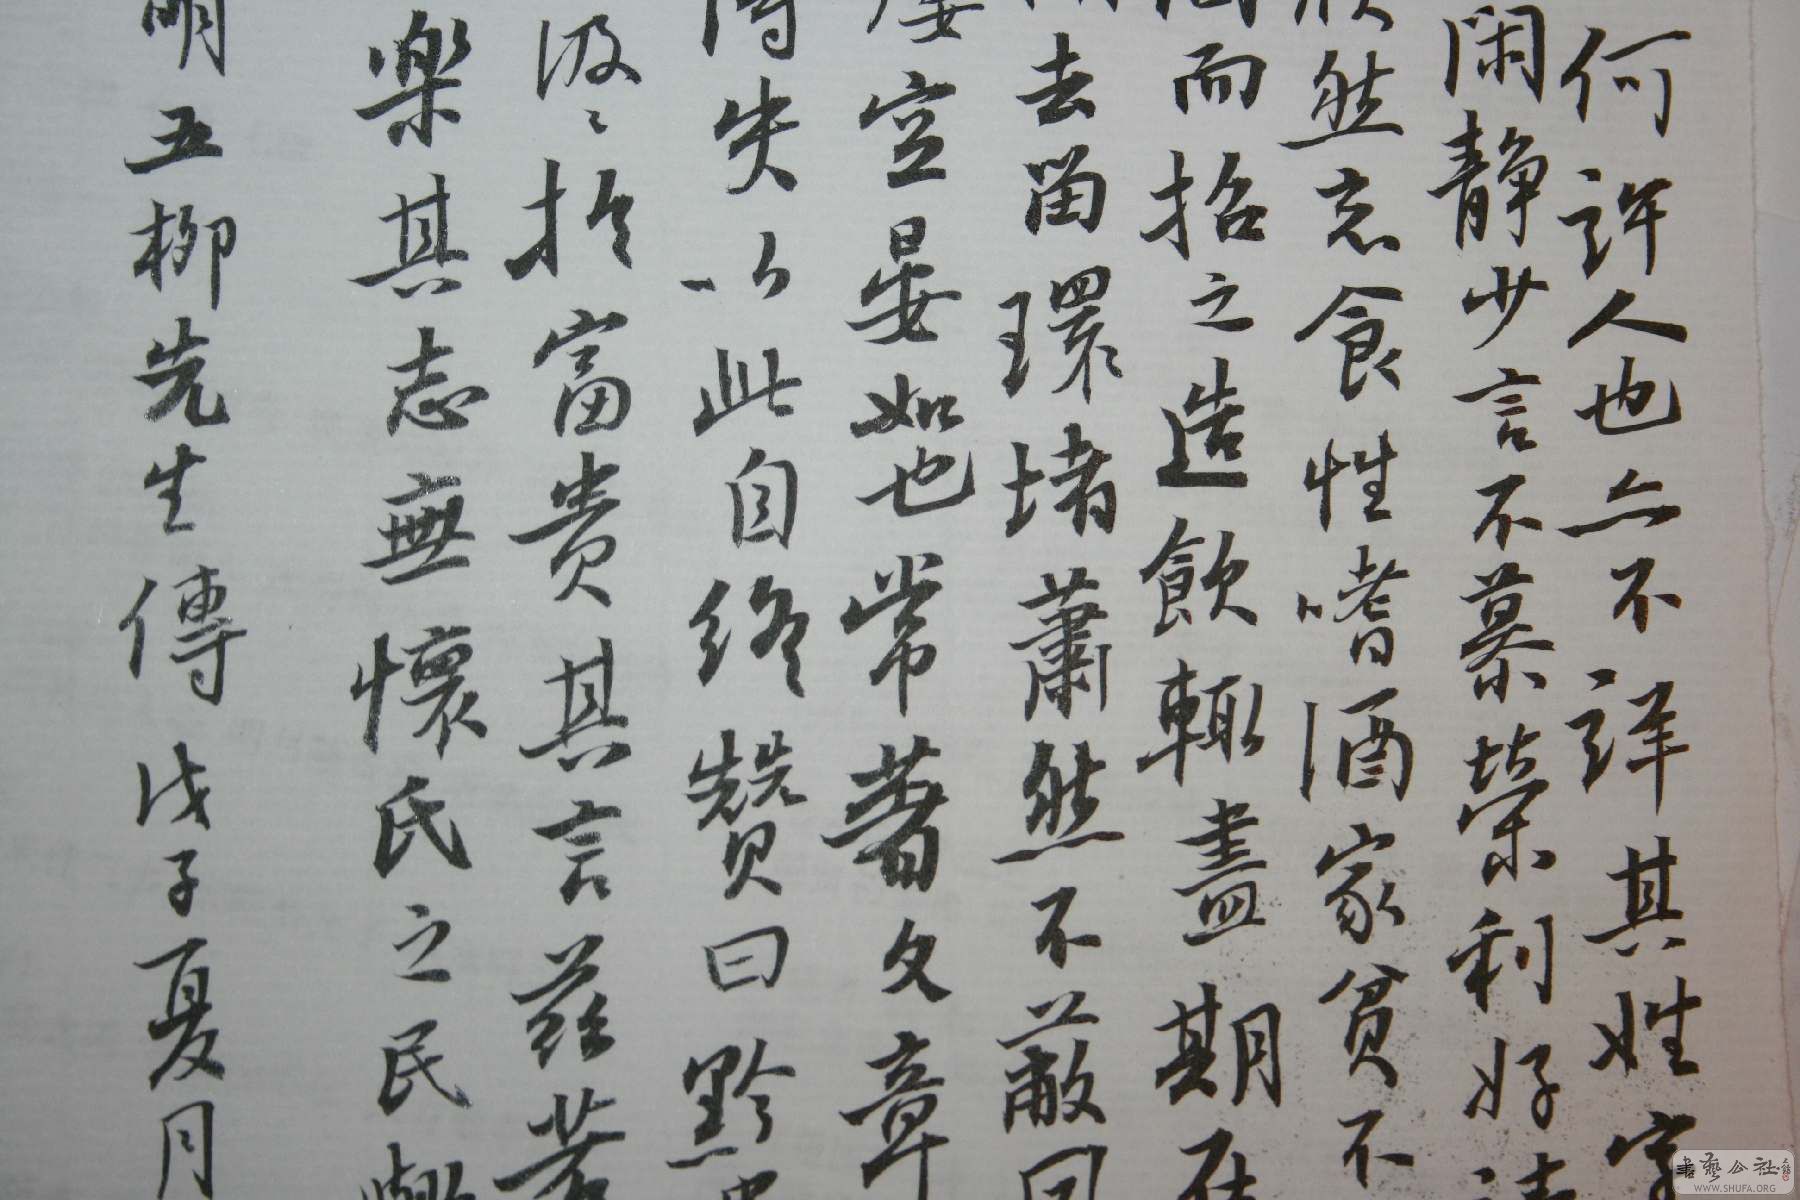 何許人也亦不詳其姓字
閑靜少言不慕榮利好讀
欣然忘食性嗜酒家貧不
而招之造飲輒盡期在
去留環堵蕭然不蔽
屢空晏如也常著文章
得失以此自終贊曰黔
汲〻於富貴其言茲若
樂其志無懷氏之民歟
明五柳先生傳戊子夏月
書藝公社
WWW.SHUFA.ORG